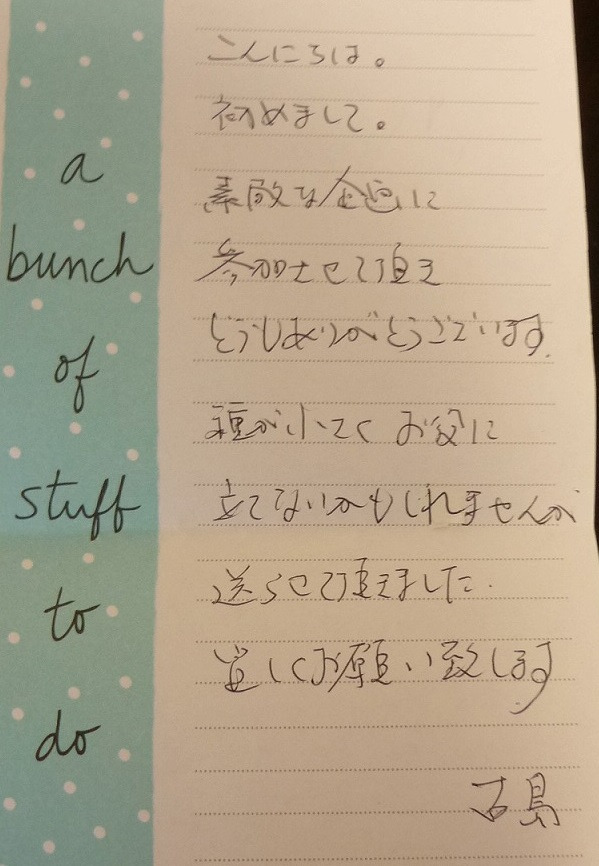 a
bunch
of
stuff
to
do
こんにちは。
初めまして。
素敵な企画に
参加させて頂き
どうもありがとうございます.
種が小さく お役に
立てないかもしれませんが
送らせて頂きました.
宜しくお願い致します
古島